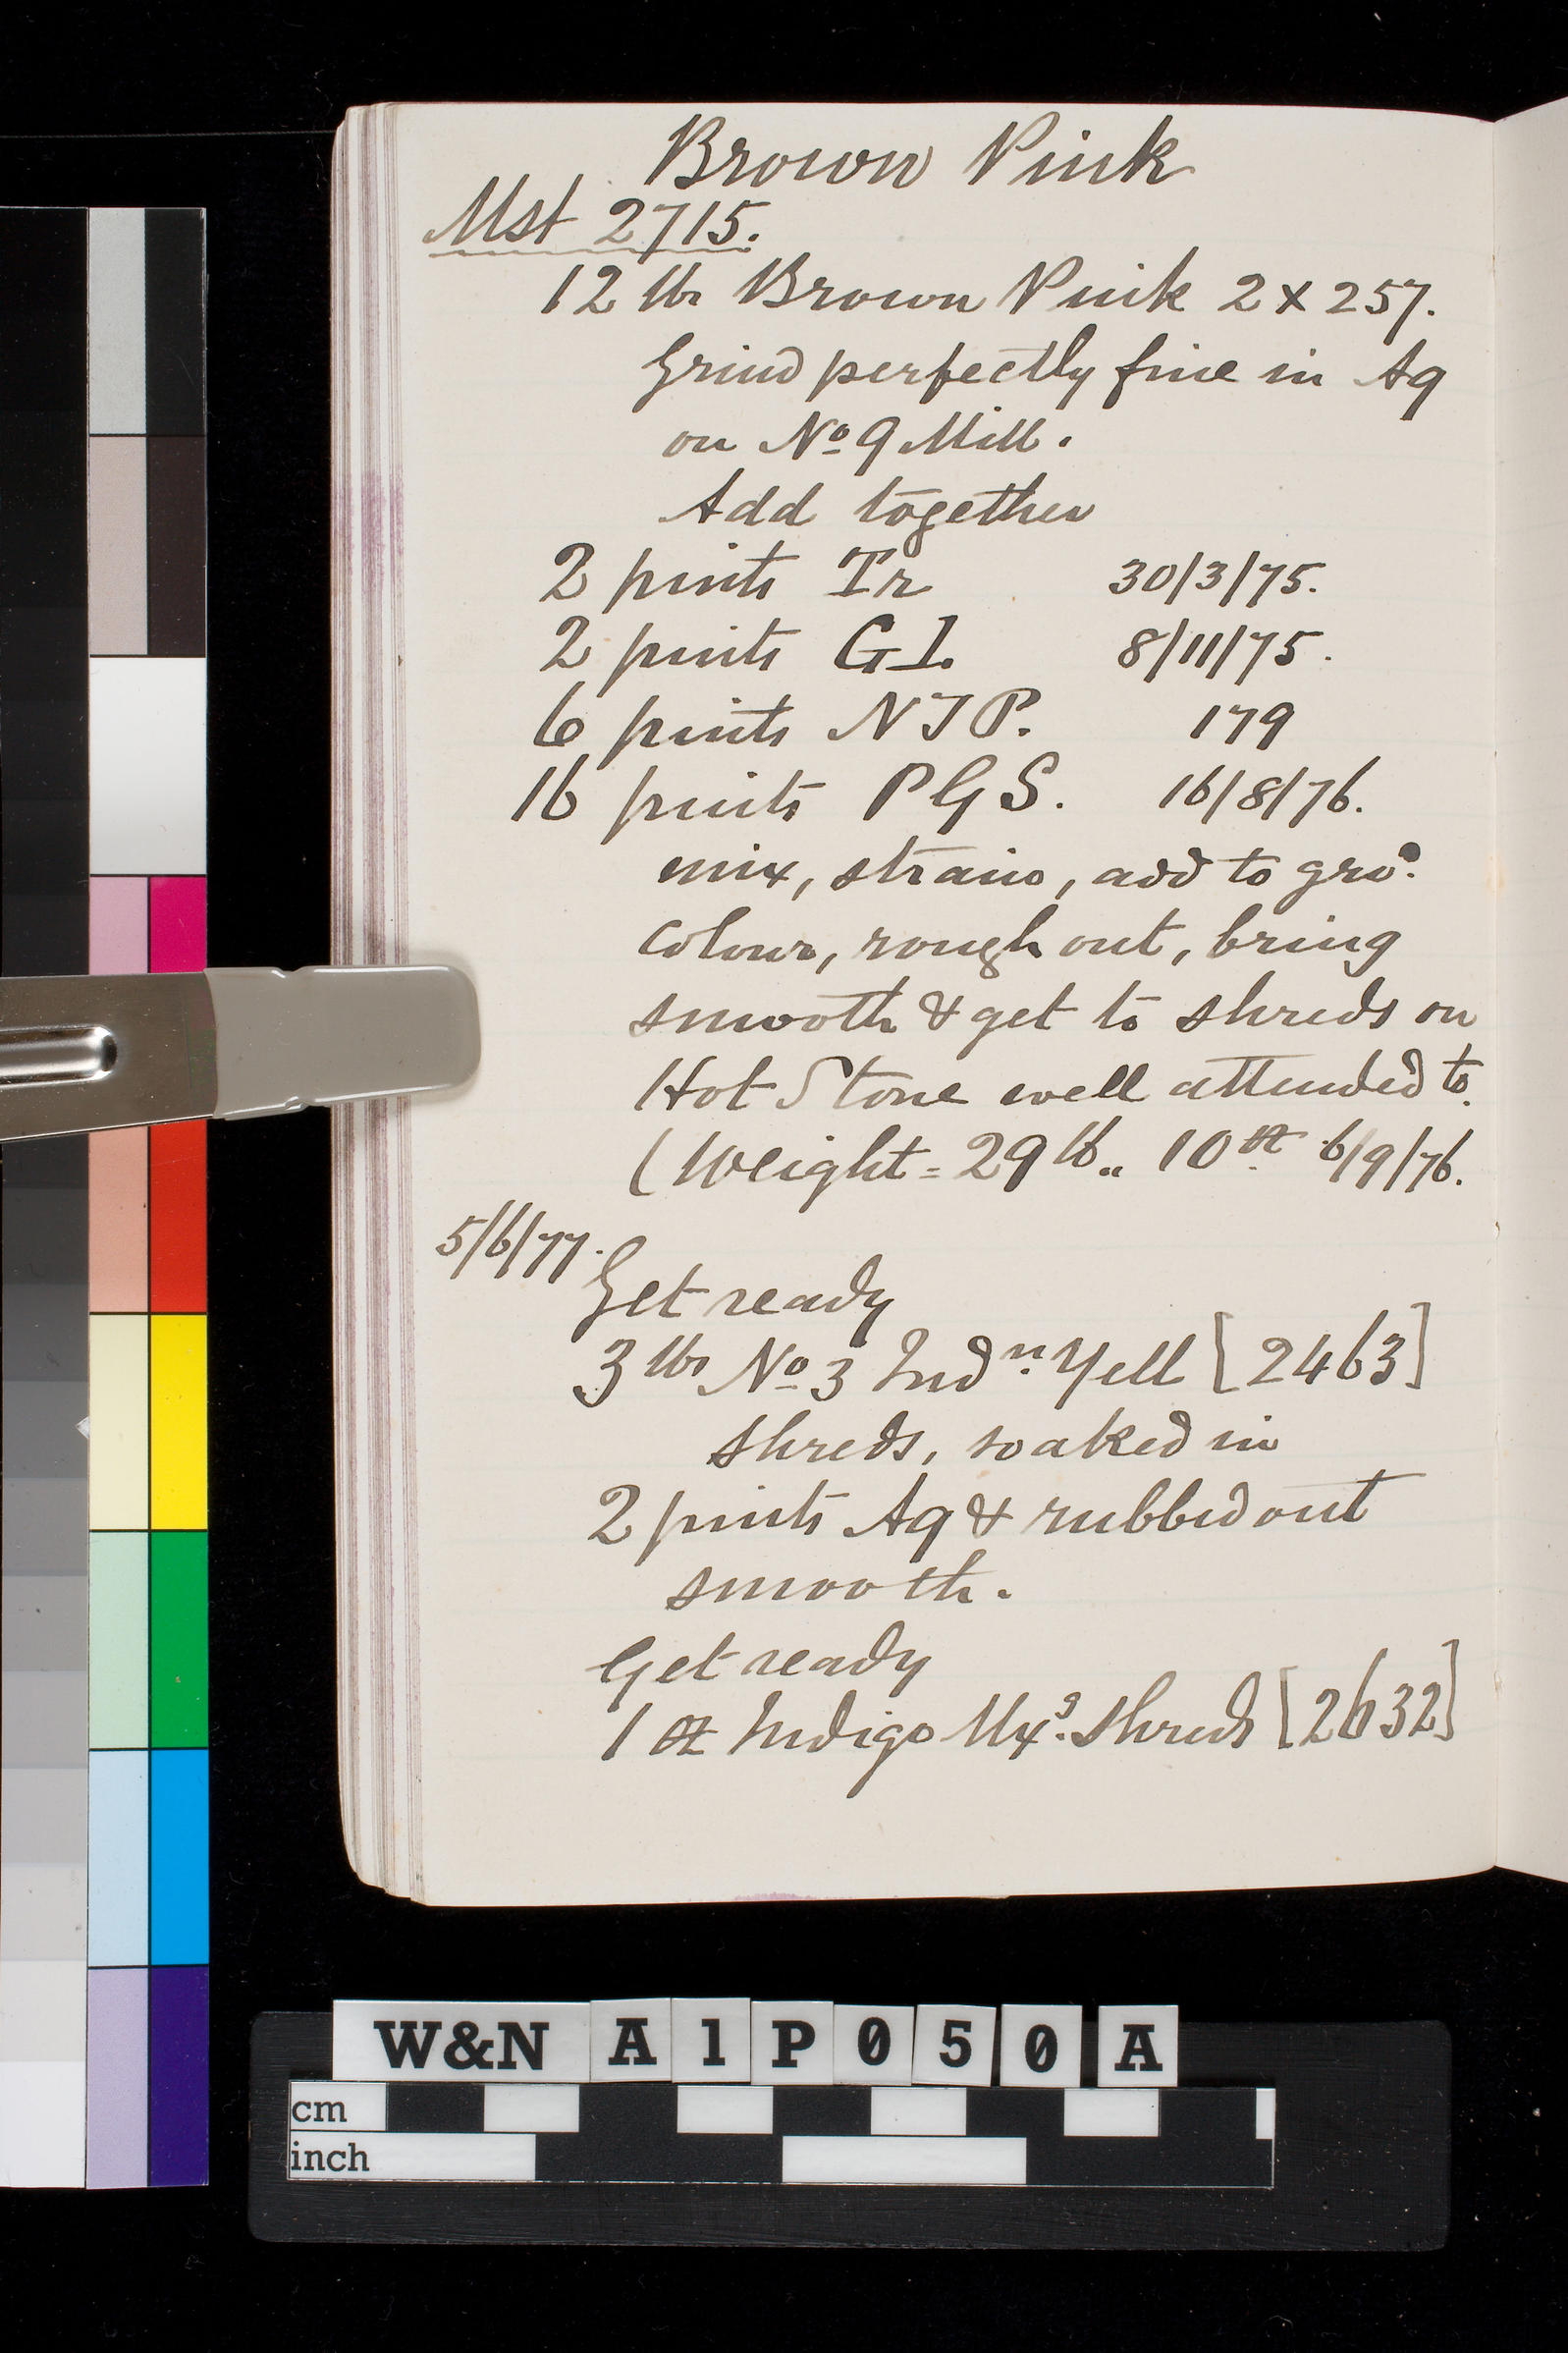 Brown Pink
Mst 2715.
12 lbs Brown Pink 2 x 257.
Grind perfectly fine in Aq
on No 9 Mill.
Add together
2 pints Tr 30/3/75.
2 pints G1. 8/11/75.
6 pints NTP. 179
16 pints PGS. 16/8/76.
mix, strain, add to grd.
colour, rough out, bring
smooth & get to shreds on
Hot Stone well attended to.
(Weight = 29 lb.. 10 oz 6/9/76.
5/6/77.
Get ready
3 lbs No 3 Indn. Yell [2463]
shreds, soaked in
2 pints Aq & rubbed out
smooth.
Get ready
1 oz Indigo Mxs. shreds [2632]
W&N A1P050A
cm
inch